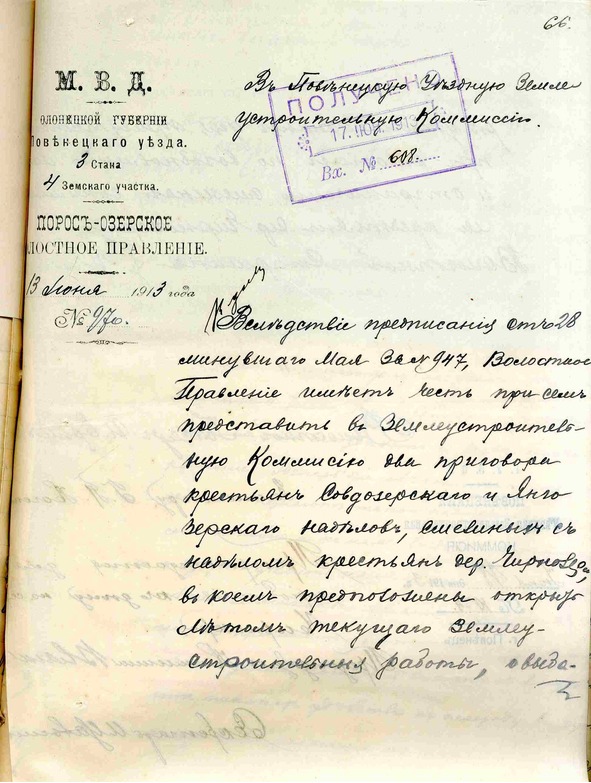 66.
М. В. Д.
ОЛОНЕЦКОЙ ГУБЕРНІИ
Повѣнецкаго уѣзда.
3 Стана
4 Земскаго участка.
ПОРОСЪ-ОЗЕРСКОЕ
ЛОСТНОЕ ПРАВЛЕНІЕ.
13 Іюня 1913 года
№ 970.
Въ Повѣнецкую Уѣздную Земле
устроительную Коммиссію.
ПОЛУЧЕНО
17. ІЮН. 1913
Вх. № 608.
Вслѣдствіе предписанія отъ 28
минувшаго Мая За № 947, Волостное
Правленіе имѣетъ честь при семъ
представить въ Землеустроитель-
ную Коммисію два приговора
крестьянъ Совдозерскаго и Янго
зерскаго надѣловъ, смежныхъ съ
надѣломъ крестьянъ дер.
въ коемъ предположены открыть
лѣтомъ текущаго Землеу-
строительныя работы, о выда-